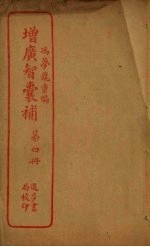 馮夢龍重編
增廣智囊補
第四冊
進步書
局校印